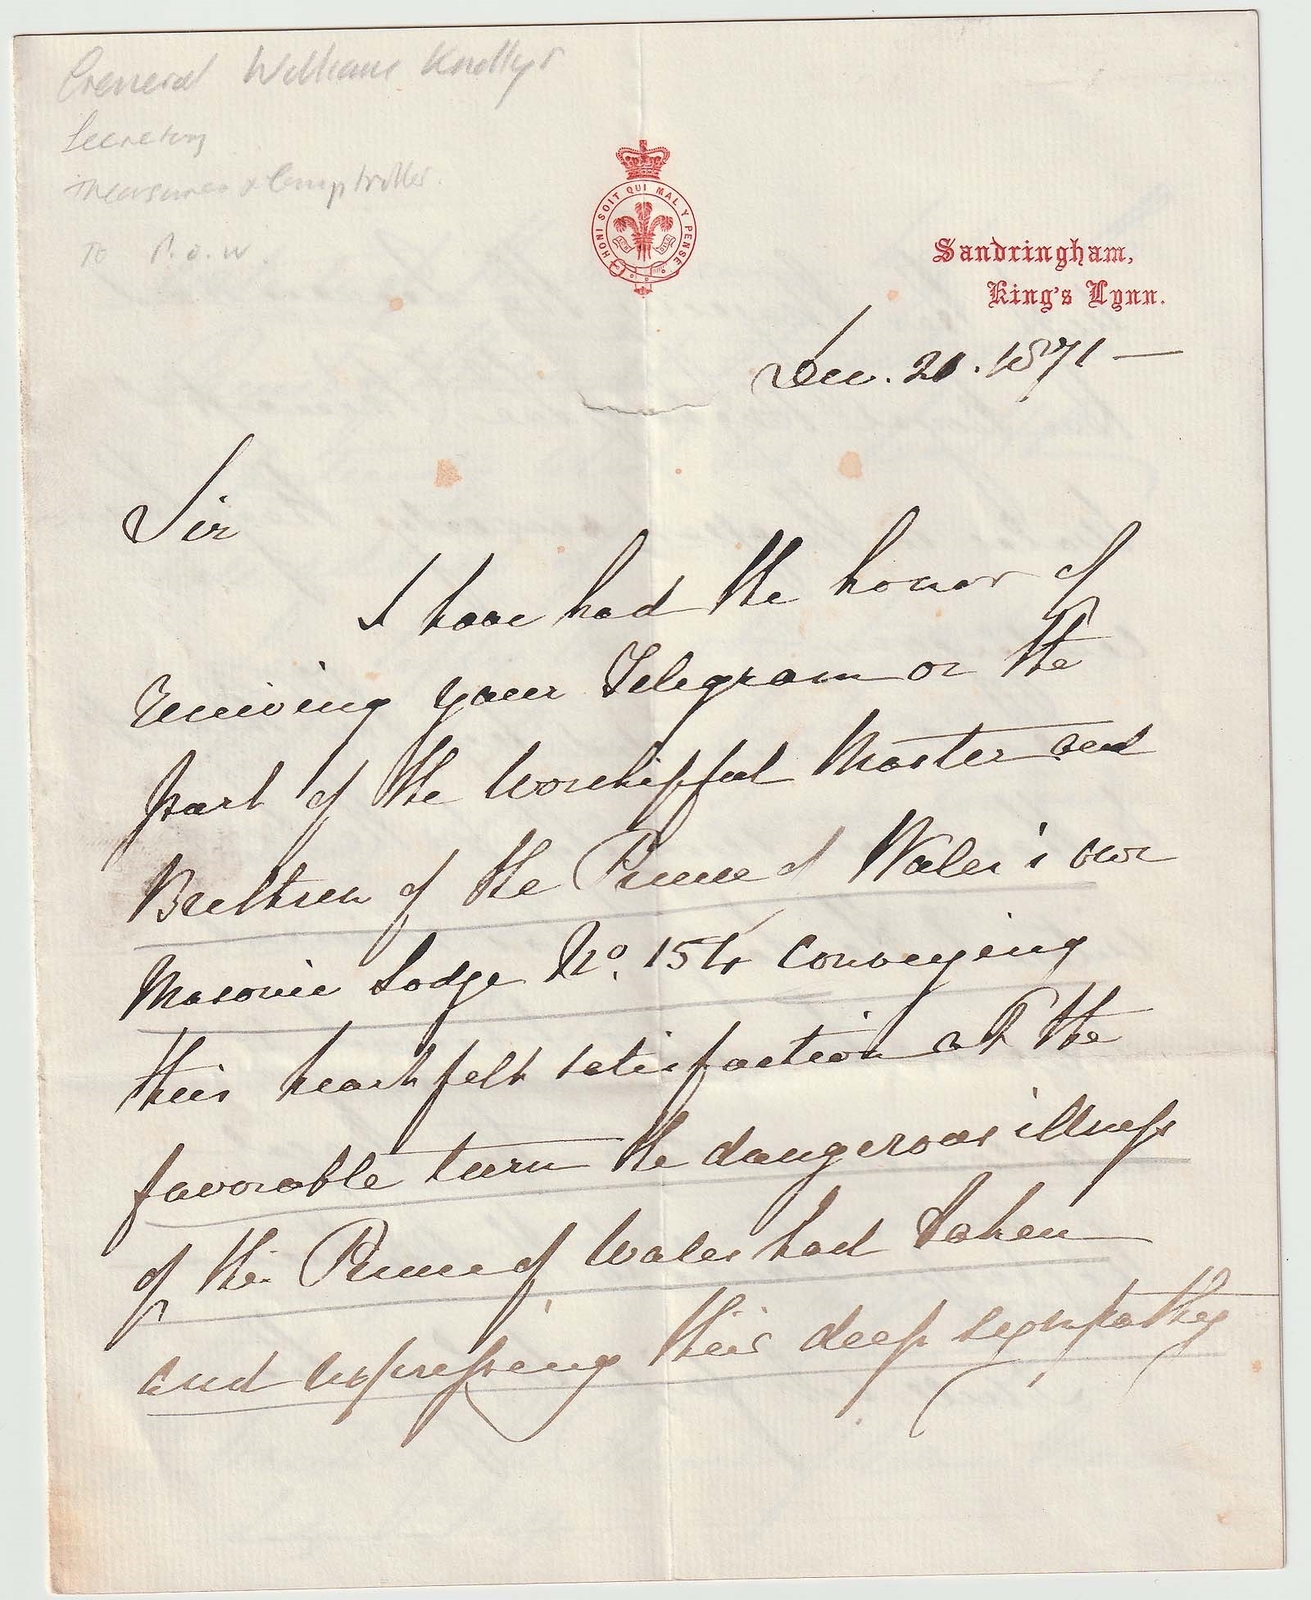 General William Knollys
Secretary
Treasurer & Comptroller.
To P.O.W
HONI SOIT QUI MAL Y PENSE
Sandringham,
King's Lynn.
Dec. 20. 1871 —
Sir
I have had the honor of
receiving your Telegram on the
part of the Worshipful Master and
Brethren of the Prince of Wales's own
Masonic Lodge No. 154 conveying
their heartfelt satisfaction at the
favorable turn the dangerous illness
of the Prince of Wales had taken
and expressing their deep sympathy